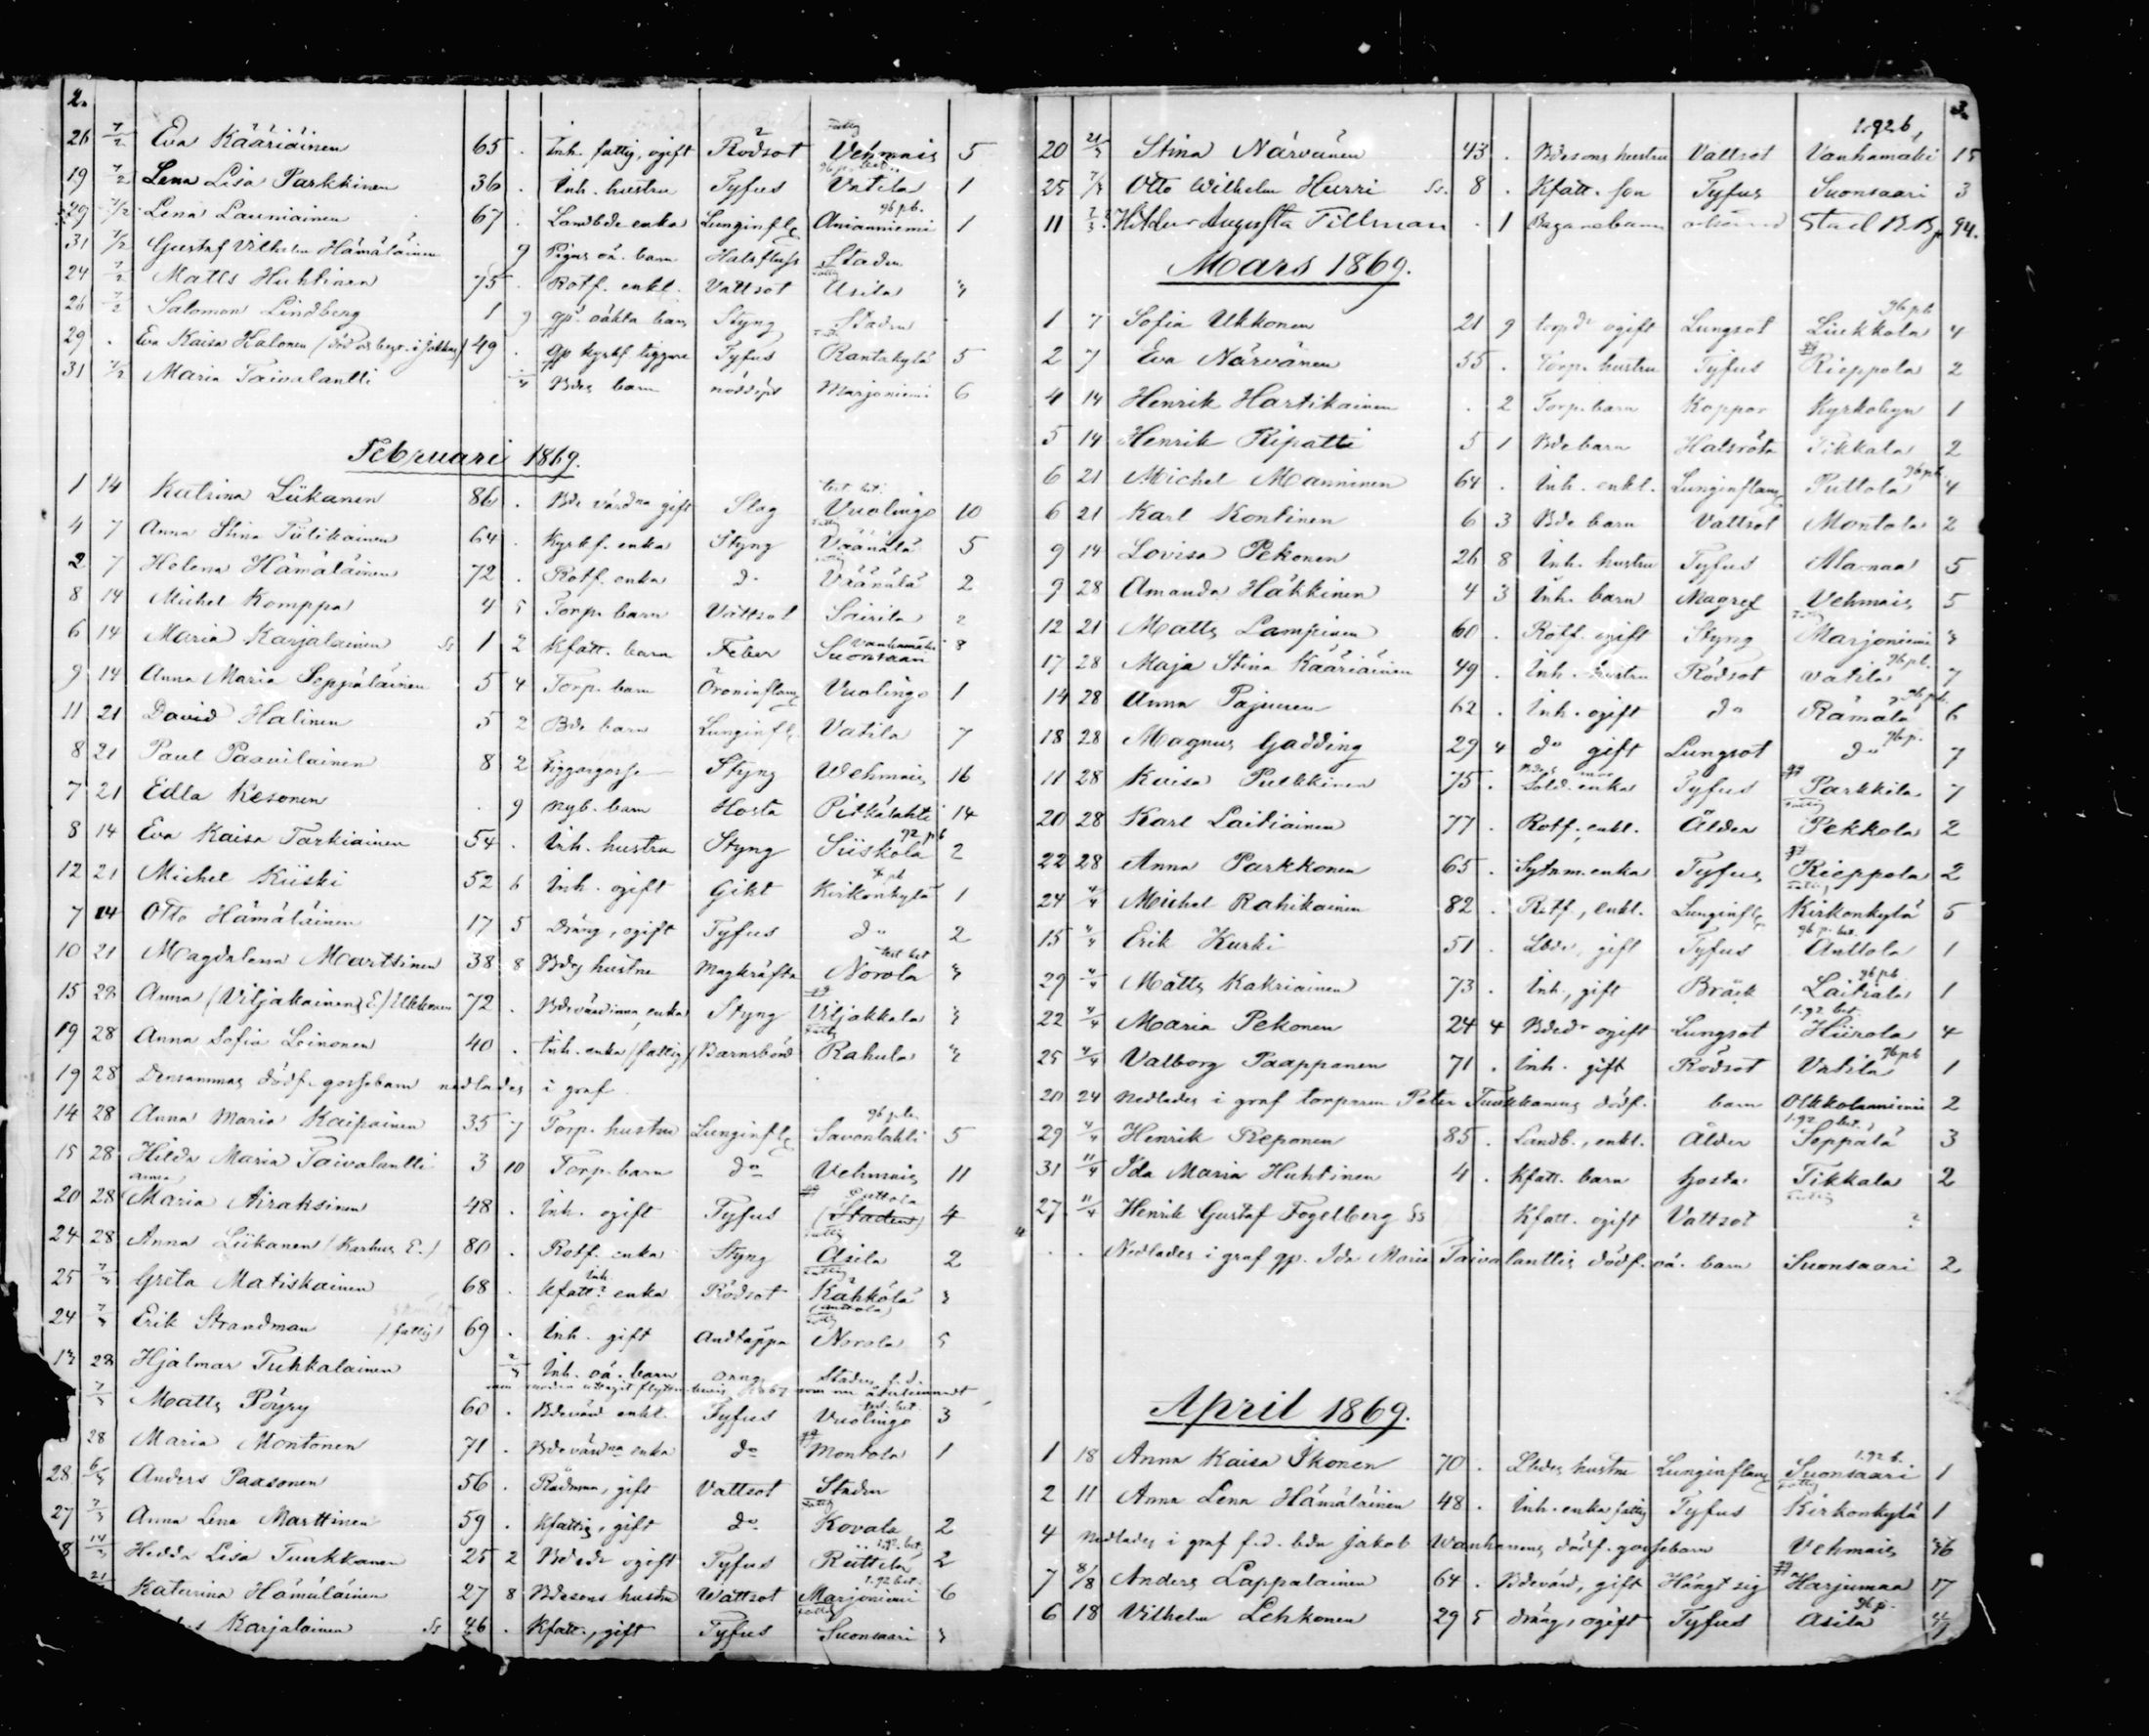 2.
26 7/2 Eva Kääriäinen 65 . Inh. fattig, ogift Rödsot Fattig Vehmais 5
19 7/2 Lena Lisa Parkkinen 36 . Inh. hustru Tyfus Vatila 1
29 7/2 Lena Launiainen 67 . Landbde enka Lunginfl. 96 p.b. Anianniemi 1
31 7/2 Gustaf Vilhelm Hämäläinen 9 Pigas oä. barn Halsfluss Staden
24 7/2 Matts Huhtinen 75 . Rotf. enkl. Vattsot Fattig Asila 3
26 7/2 Salomon Lindberg 1 9 gp. oäkta barn Styng Staden
29 . Eva Kaisa Halonen 49 . gp kyrkf. tiggare Tyfus Rantakylä 5
31 7/2 Maria Taivalantti Bdes barn nöddöpt Marjoniemi 6
Februari 1869.
1 14 Katrina Liikanen 86 . Bde värdna gift Slag Vuolingo 10
4 7 Anna Stina Tiilikainen 64 . Kyrkf. enka Styng Fattig Väänälä 5
2 7 Helena Hämäläinen 72 . Rotf. enka do Väänälä 2
8 14 Michel Komppa 4 5 Torp. barn Vattsot Sairila 2
6 14 Maria Karjalainen Ss 1 2 Kfatt. barn Feber Vanhamäki Suonsaari 8
9 14 Anna Maria Seppäläinen 5 4 Torp. barn Öroninflam Vuolingo 1
11 21 David Halinen 5 2 Bde barn Lunginfl. Vatila 7
8 21 Paul Paavilainen 8 2 Tiggargosse Styng Wehmais 16
7 21 Edla Kesonen . 9 nyb. barn Hosta Pitkälahti 14
8 14 Eva Kaisa Tarkiainen 54 . Inh. hustru Styng 92 p b Siiskola 2
12 21 Michel Kiiski 52 6 Inh. ogift Gikt Kirkonkylä 1
7 14 Otto Hämäläinen 17 5 Dräng, ogift Tyfus do 2
10 21 Magdalena Marttinen 38 8 Bdes hustru Magkräfta Norola 3
15 28 Anna (Viljakainens E.) Ukkonen 72 . Bdevärdinna, enka Styng Viljakkala 3
19 28 Anna Sofia Loinonen 40 . Inh. enka (fattig) Barnsbörd Fattig Rahula 3
19 28 Densammas dödf. gossebarn nedlades i graf
14 28 Anna Maria Kaipainen 35 7 Torp. hustru Lunginfl. 96 p.b. Savonlahti 5
15 28 Hilda Maria Taivalantti 3 10 Torp. barn do Vehmais 11
20 28 Anna Maria Airaksinen 48 . Inh. ogift Tyfus Puttola (Staden) 4
24 28 Anna Liikanen (Karhus E.) 80 . Rotf. enka Styng Fattig Asila 2
25 7/3 Greta Matiskainen 68 . Inh. Kfatt. enka Rödsot Fattig Kähkölä 3
24 7/3 Erik Strandman (fattig) 69 . Inh. gift Andtäppa (Anttola) Fattig Norola 5
13 28 Hjalmar Tuhkalainen Inh. oä. barn Staden f.d.
7/3 Matts Pöyry 60 . Bdevärd enkl. Tyfus Vuolingo 3
28 Maria Montonen 71 . Bdevärdna enka do Montola 1
28 6/3 Anders Paasonen 56 . Rådman, gift Vattsot Staden
27 7/3 Anna Lena Marttinen 59 . Kfattig, gift do Fattig Kovala 2
8 14/3 Hedda Lisa Tuukkanen 25 2 Bdedr ogift Tyfus 1.92. bet. Ruttila 2
21 Katarina Hämäläinen 27 8 Bdesons hustru Wattsot 1.92. bet. Marjoniemi 6
Karjalainen Ss 46 . Kfatt., gift Tyfus Fattig Suonsaari 3
3.
20 21/3 Stina Närvänen 43 . Bdesons hustru Vattsot 1.92.b. Vanhamäki 15
25 7/3 Otto Wilhelm Hurri Ss. 8 . Kfatt. son Tyfus Suonsaari 3
11 7/3 Hilda Augusta Tillman . 1 Bagarebarn Stad B.B. 94.
Mars 1869.
1 7 Sofia Ukkonen 21 9 torp dr ogift Lungsot 96 p.b. Liukkola 4
2 7 Eva Närvänen 55 . Torp. hustru Tyfus Rieppola 2
4 14 Henrik Hartikainen . 2 Torp. barn Koppor Kyrkobyn 1
5 14 Henrik Ripatti 5 1 Bde barn Halsröta Tikkala 2
6 21 Michel Manninen 64 . Inh. enkl. Lunginflam 96 p.b. Puttola 4
6 21 Karl Kontinen 6 3 Bde barn Vattsot Montola 2
9 14 Lovisa Pekonen 26 8 Inh. hustru Tyfus Alamaa 5
9 28 Amanda Häkkinen 4 3 Inh. barn Magref Vehmais 5
12 21 Matts Lampinen 60 . Rotf. ogift Styng Fattig Marjoniemi 3
17 28 Maja Stina Kääriäinen 49 . Inh. hustru Rödsot 96 p.b. Vatila 7
14 28 Anna Pajunen 62 . Inh. ogift do 96 p.b. Rämälä 6
18 28 Magnus Gadding 29 4 do gift Lungsot 96 p. do 7
11 28 Kaisa Pulkkinen 75 . Sold. enka Tyfus Parkkila 7
20 28 Karl Laitiainen 77 . Rotf. enkl. Ålder Fattig Pekkola 2
22 28 Anna Parkkonen 65 . Sytnm. enka Tyfus Rieppola 2
24 4/4 Michel Rahikainen 82 . Rotf., enkl. Lunginfl. Fattig Kirkonkylä 5
15 4/4 Erik Kurki 51 . Lbde, gift Tyfus 96 p. bet. Anttola 1
29 4/4 Matts Kakriainen 73 . Inh., gift Bräck 96 p.b. Laitiala 1
22 4/4 Maria Pekonen 24 4 Bdedr ogift Lungsot 1.92. bet. Hiirola 4
25 4/4 Valborg Paapponen 71 . Inh. gift Rödsot 96 p.b Vatila 1
20 24 Nedlades i graf torparen Peter Tuukkanens dödf. barn Olkkolanniemi 2
29 4/4 Henrik Reponen 85 . Landb., enkl. Ålder 1.92. bet. Seppälä 3
31 11/4 Ida Maria Huhtinen 4 . Kfatt. barn hosta Tikkala 2
27 11/4 Henrik Gustaf Fogelberg Ss Kfatt. ogift Vattsot Fattig ?
. . Nedlades i graf gp. Ida Maria Taivalanttis dödf. oä. barn Suonsaari 2
April 1869.
1 18 Anna Kaisa Ikonen 70 . Lbdes hustru Lunginflam 1.92 b. Suonsaari 1
2 11 Anna Lena Hämäläinen 48 . Inh. enka fattig Tyfus Fattig Kirkonkylä 1
4 Nedlades i graf f.d. bdn Jakob Wanhanens dödf. gossebarn Vehmais 36
7 8/8 Anders Lappalainen 64 . Bdevärd, gift Hängt sig Harjumaa 17
6 18 Vilhelm Lehkonen 29 5 dräng, ogift Tyfus 96 p. Asila